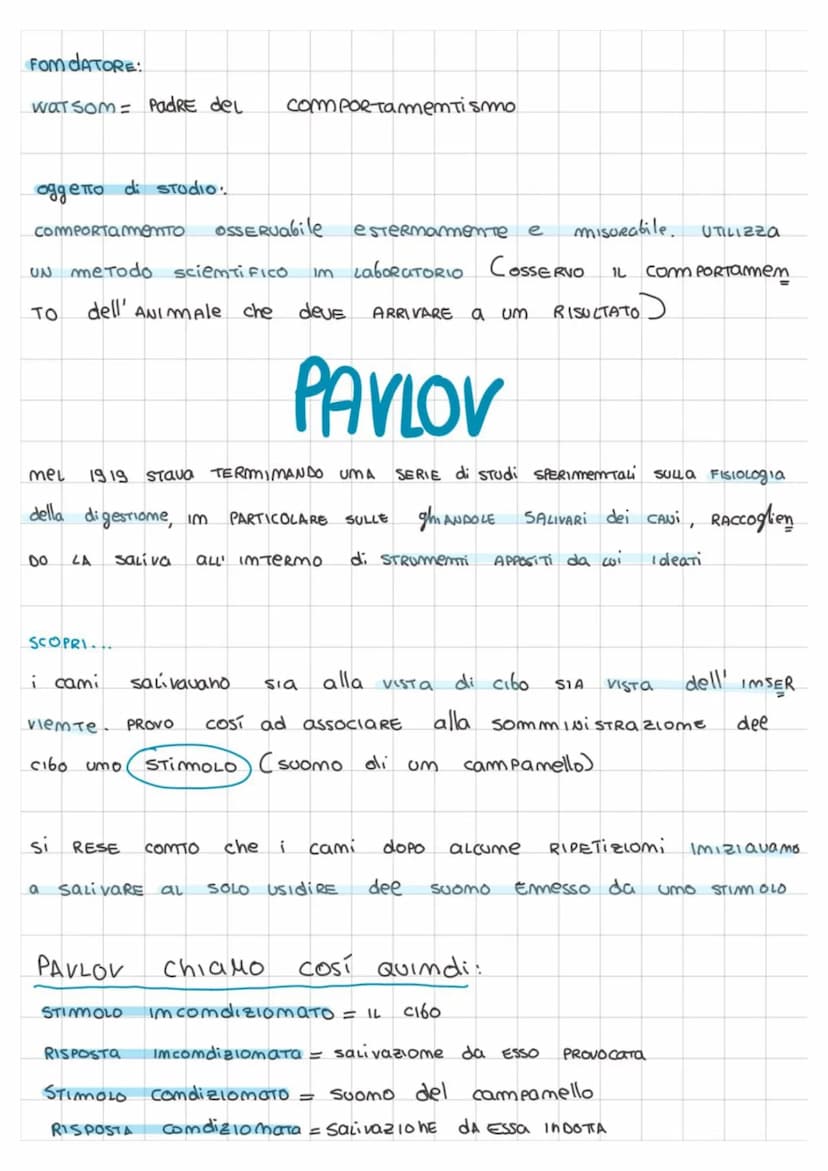 FONDATORE:
WATSON = PADRE del COMPORTAMENTISMO
oggetto di STUDIO:
COMPORTAMENTO OSSERVABILE ESTERNAMENTE e MISURABILE. UTILIZZA
UN METODO SCIENTIFICO IN LABORATORIO (OSSERVO IL COMPORTAMEN
TO dell' ANIMALE che DEVE ARRIVARE a UN RISULTATO)
PAVLOV
NEL 1919 STAVA TERMINANDO UNA SERIE di STUDI SPERIMENTALI SULLA FISIOLOGIA
della digestione, IN PARTICOLARE SULLE ghIANDOLE SALIVARI dei CANI, RACCOglien
DO LA SALIVA ALL' INTERNO di STRUMENTI APPOSITI da lui ideati
SCOPRI...
i cani salivavano SIA alla VISTA di cibo SIA VISTA dell' INSER
VIENTE. PROVO COSÍ ad ASSOCIARE alla SOMMINISTRAZIONE del
CIBO UNO STIMOLO (SUONO di UN CAMPANELLO)
Si RESE CONTO che i cani DOPO ALCUNE RIPETIZIONI INIZIAVANO
a SALIVARE AL SOLO USIDIRE del SUONO EMESSO da UNO STIMOLO
PAVLOV CHIAMO COSÍ QUINDI:
STIMOLO INCONDIZIONATO = IL CIBO
RISPOSTA INCONDIZIONATA = SALIVAZIONE da ESSO PROVOCATA
STIMOLO CONDIZIONATO = SUONO del CAMPANELLO
RISPOSTA CONDIZIONATA = SALIVAZIONE DA ESSA INDOTTA